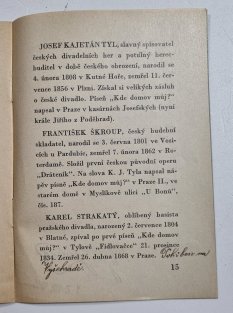 JOSEF KAJETÁN TYL, slavný spisovatel
českých divadelních her a potulný herec-
buditel v době českého obrození, narodil se
4. února 1808 v Kutné Hoře, zemřel 11. čer-
vence 1856 v Plzni. Získal si velikých zásluh
o české divadlo. Píseň „Kde domov můj?"
napsal v Praze v kasárnách Josefských (nyní
krále Jiřího z Poděbrad).
FRANTIŠEK ŠKROUP, český hudební
skladatel, narodil se 3. června 1801 ve Vo-
sicích u Pardubic, zemřel 7. února 1862 v Ro-
terdamě. Složil první českou původní operu
„Dráteník". Na slova K. J. Tyla napsal ná-
pěv písně „Kde domov můj?" v Praze II., ve
starém domě v Myslíkově ulici „U Bonů",
čís. 187.
KAREL STRAKATÝ, oblíbený basista
pražského divadla, narozený 2. července 1804
v Blatné, zpíval po prvé píseň „Kde domov
můj?" v Tylově „Fidlovačce" 21. prosince
1834. Zemřel 26. dubna 1868 v Praze.
Vyšehradě.
15